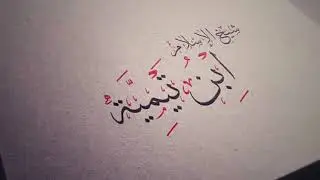 شيخ الإسلام
ابْنُ تَيْمِيَّةَ